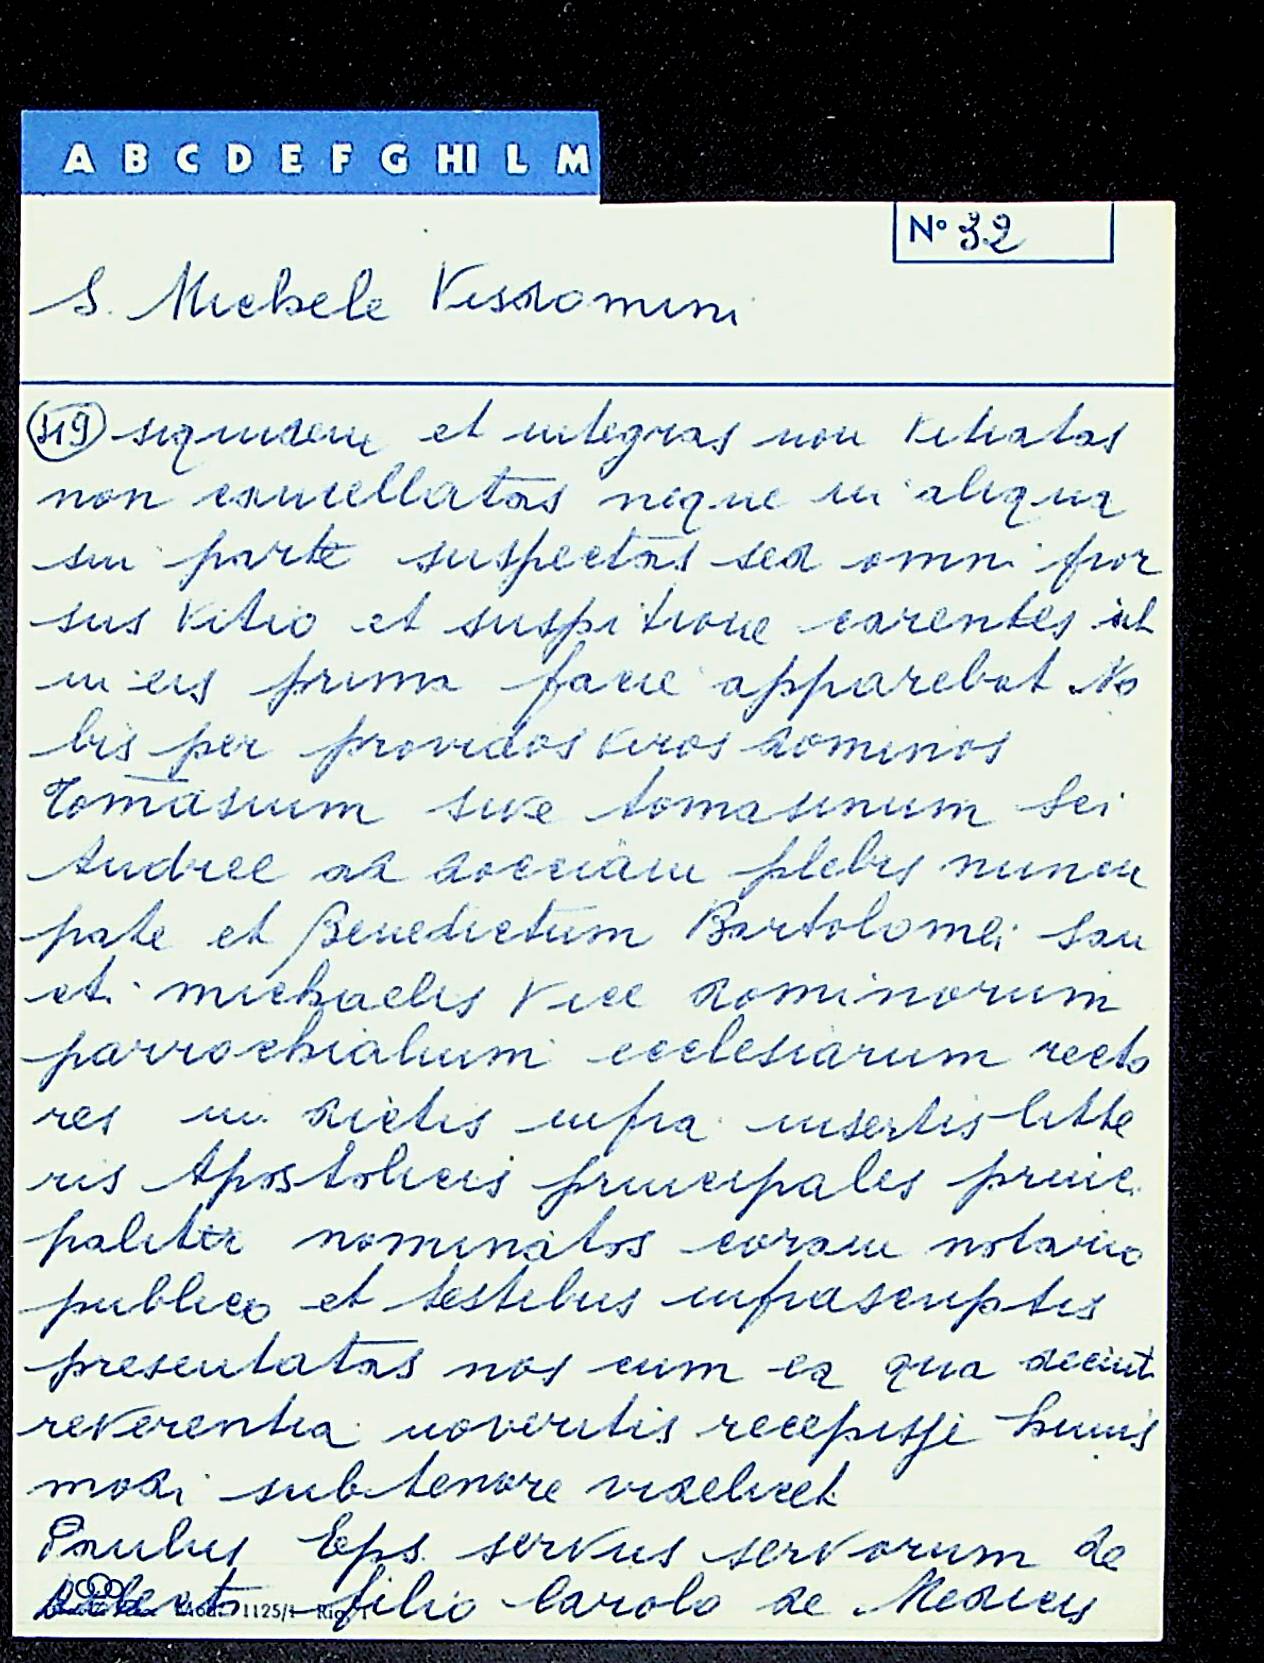 A B C D E F G HI L M
N° 32
S. Michele Visdomini
319 siquidem et integras non vitiatas
non cancellatas neque in aliqua
sui parte suspectas sed omni pror
sus vitio et suspitione carentes ut
in eis prima facie apparebat No
bis per providos viros dominos
Tomasium sive tomasinum Sci
Andree ad docciam plebis nuncu
pate et Benedictum Bartolomei San
cti michaelis Vice dominorum
parrochialium ecclesiarum recto
res in dictis infra insertis litte
ris Apostolicis principales princi
paliter nominatos coram notario
publico et testibus infrascriptis
presentatas nos cum ea qua decuit
reverentia noveritis recepisse huius
modi sub tenore videlicet
Paulus Eps servus servorum de
Dilecto filio Carolo de Medicis
Mod. 1125/1 Rig.